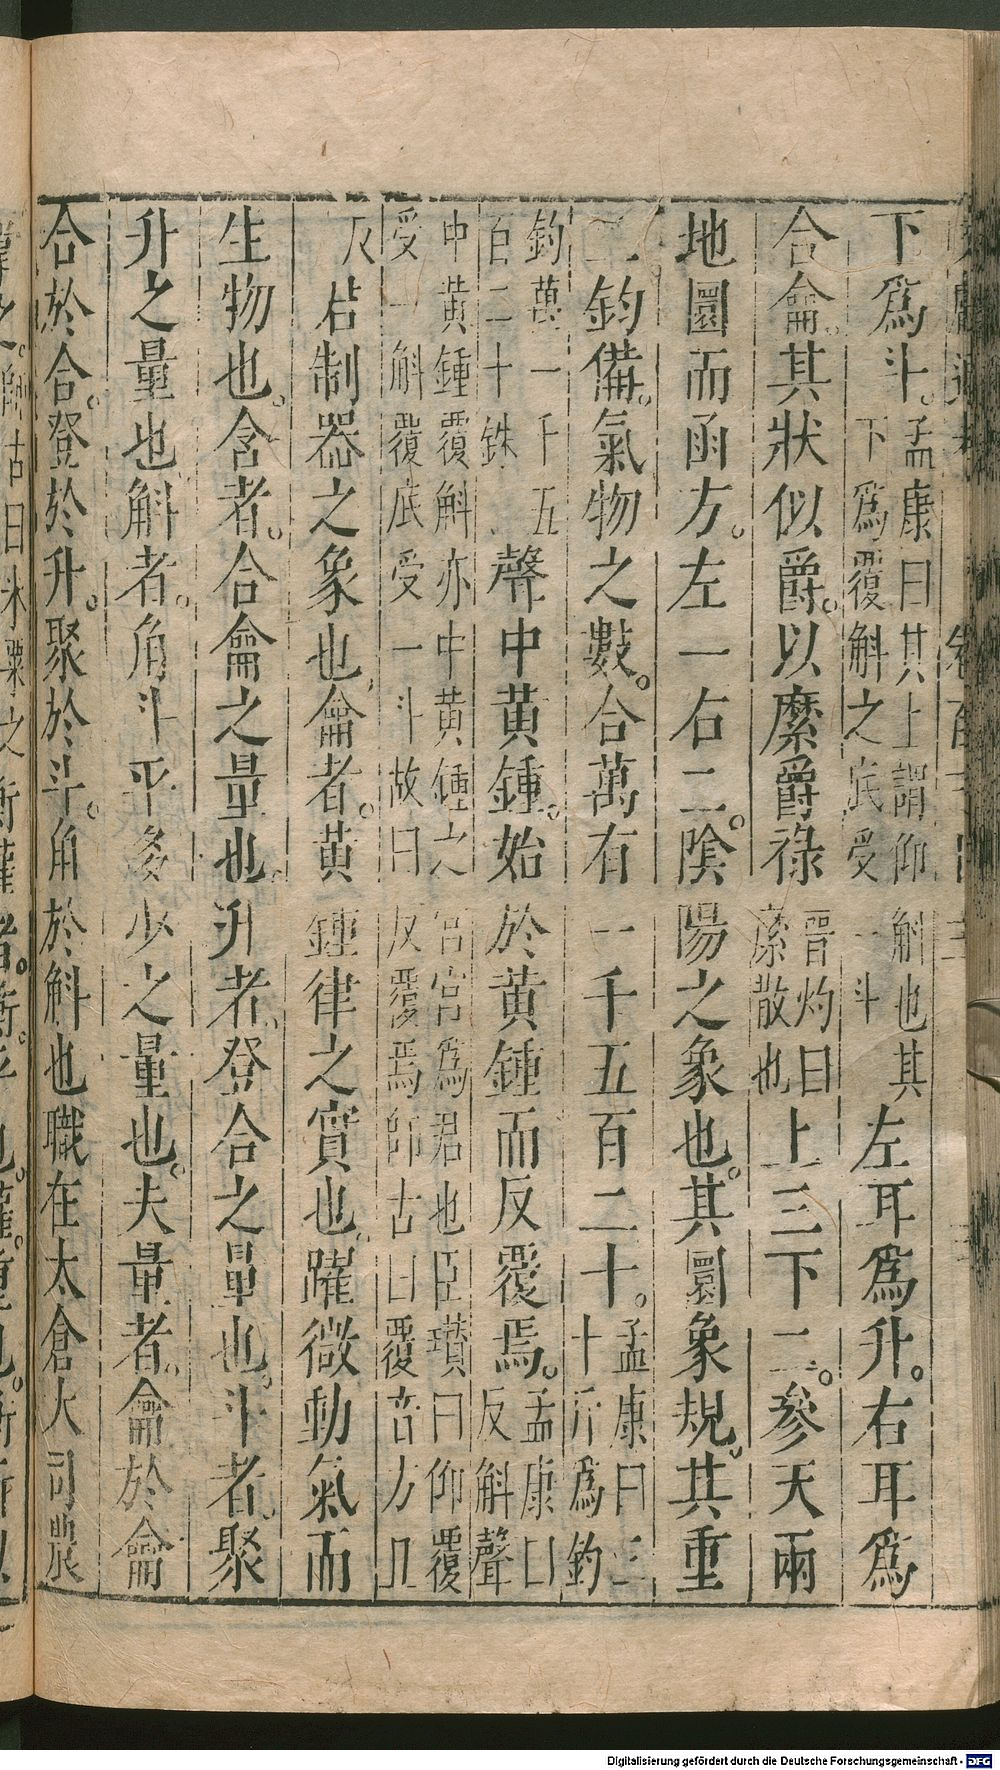 下爲斗。孟康曰其上謂仰斛也其下爲覆斛之底受一斗左耳爲升。右耳爲
合龠。其狀似爵。以縻爵祿晉灼曰縻散也上三下二。參天兩
地圜而函方。左一右二。陰陽之象也。其圜象規。其重
二鈞備。氣物之數。合萬有一千五百二十。孟康曰三十斤爲鈞
鈞萬一千五百二十銖聲中黄鍾。始於黄鍾而反覆焉。孟康曰反斛聲
中黄鍾覆斛亦中黄鍾之宮宮爲君也臣瓉曰仰覆受一斛覆底受一斗故曰反覆焉師古曰覆音方目
反君制器之象也龠者。黄鍾律之實也。躍微動氣而
生物也。合者。合龠之量也。升者、登合之量也。斗者。聚
升之量也斛者。角斗平多少之量也。夫量者。龠於龠
合於合。登於升。聚於斗。角於斛也職在太倉大司農
Digitalisierung gefördert durch die Deutsche Forschungsgemeinschaft - DFG